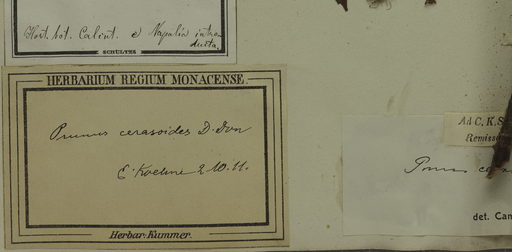 Hort. bot. Calcut. e Napalia intro
ducta.
SCHULTES
HERBARIUM REGIUM MONACENSE.
Prunus cerasoides D. Don
E. Koehne 2.10.11.
Herbar. Kummer.
Ad C. K. S
Remiss
det. Cam